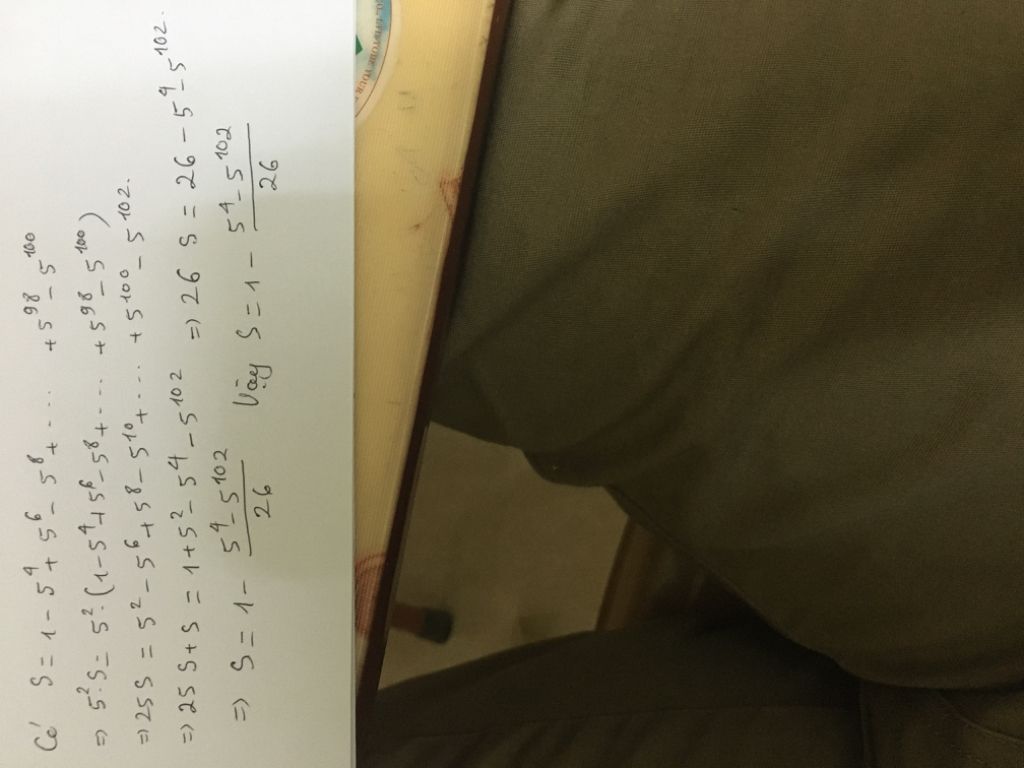 Có S = 1 - 5⁴ + 5⁶ - 5⁸ + .... + 5⁹⁸ - 5¹⁰⁰
=> 5².S = 5².(1 - 5⁴ + 5⁶ - 5⁸ + .... + 5⁹⁸ - 5¹⁰⁰)
=> 25S = 5² - 5⁶ + 5⁸ - 5¹⁰ + .... + 5¹⁰⁰ - 5¹⁰².
=> 25S + S = 1 + 5² - 5⁴ - 5¹⁰² => 26 S = 26 - 5⁴ - 5¹⁰².
=> S = 1 - (5⁴ - 5¹⁰²)/26 Vậy S = 1 - (5⁴ - 5¹⁰²)/26